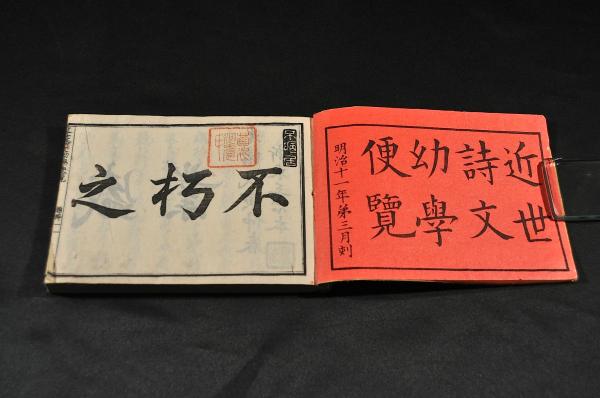 近世
詩文
幼學
便覽
明治十一年第三月刻
不朽之